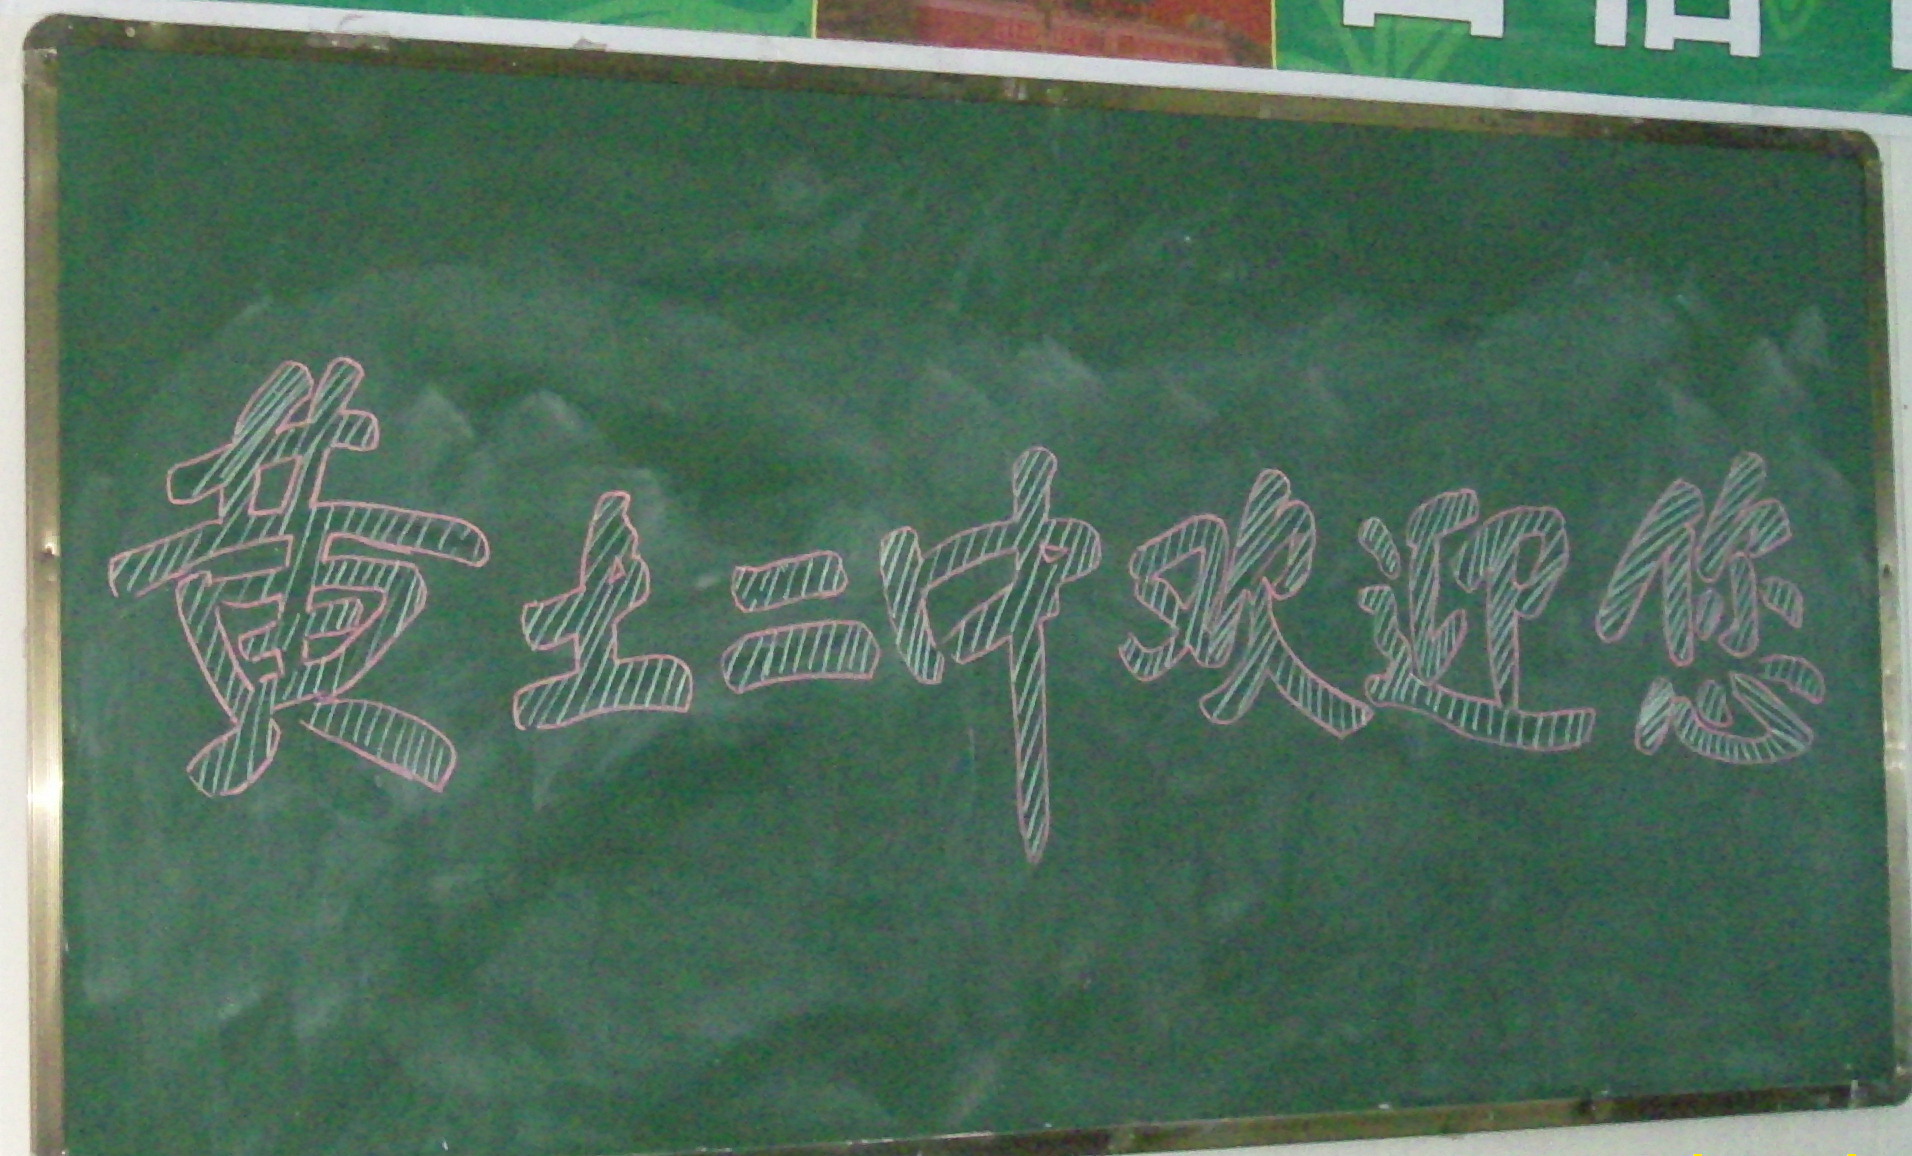 黄土二中欢迎您